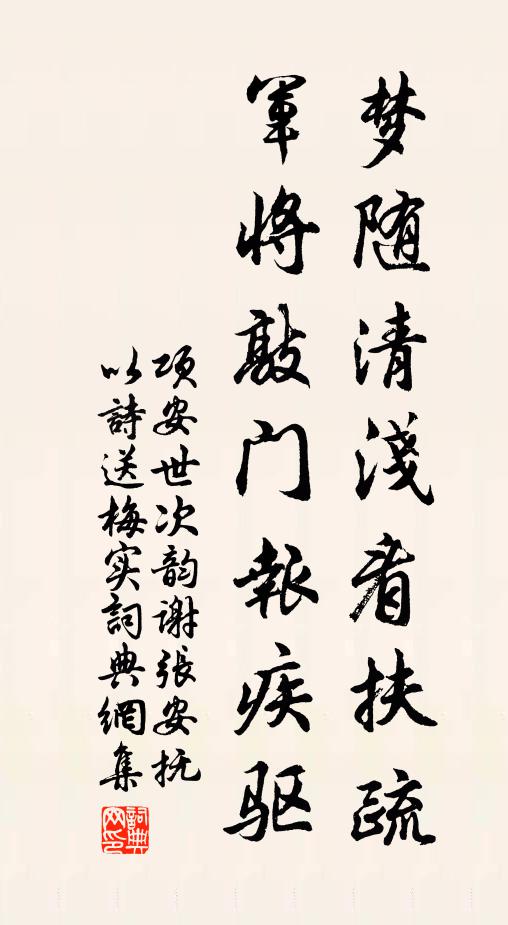 梦随清淺看扶疏
軍將敲门報疾驱
项安世次韵谢張安抚
以詩送梅实詞典網集
詞典网印